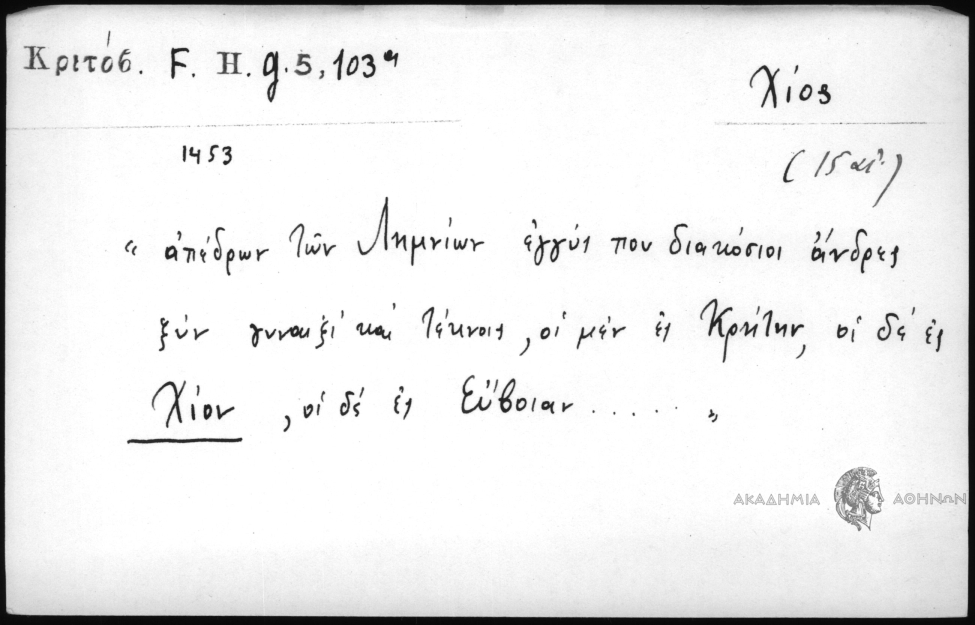 Κριτόβ. F. H. g. 5, 103a
Χίος
1453
(15 αἰ.)
“ ἀπέδρων τῶν Λημνίων ἐγγύς που διακόσιοι ἄνδρες
ξύν γυναιξί καί τέκνοις, οἱ μέν ἐς Κρήτην, οἱ δέ ἐς
Χίον, οἱ δέ ἐς Εὔβοιαν ..... ”
ΑΚΑΔΗΜΙΑ ΑΘΗΝΩΝ